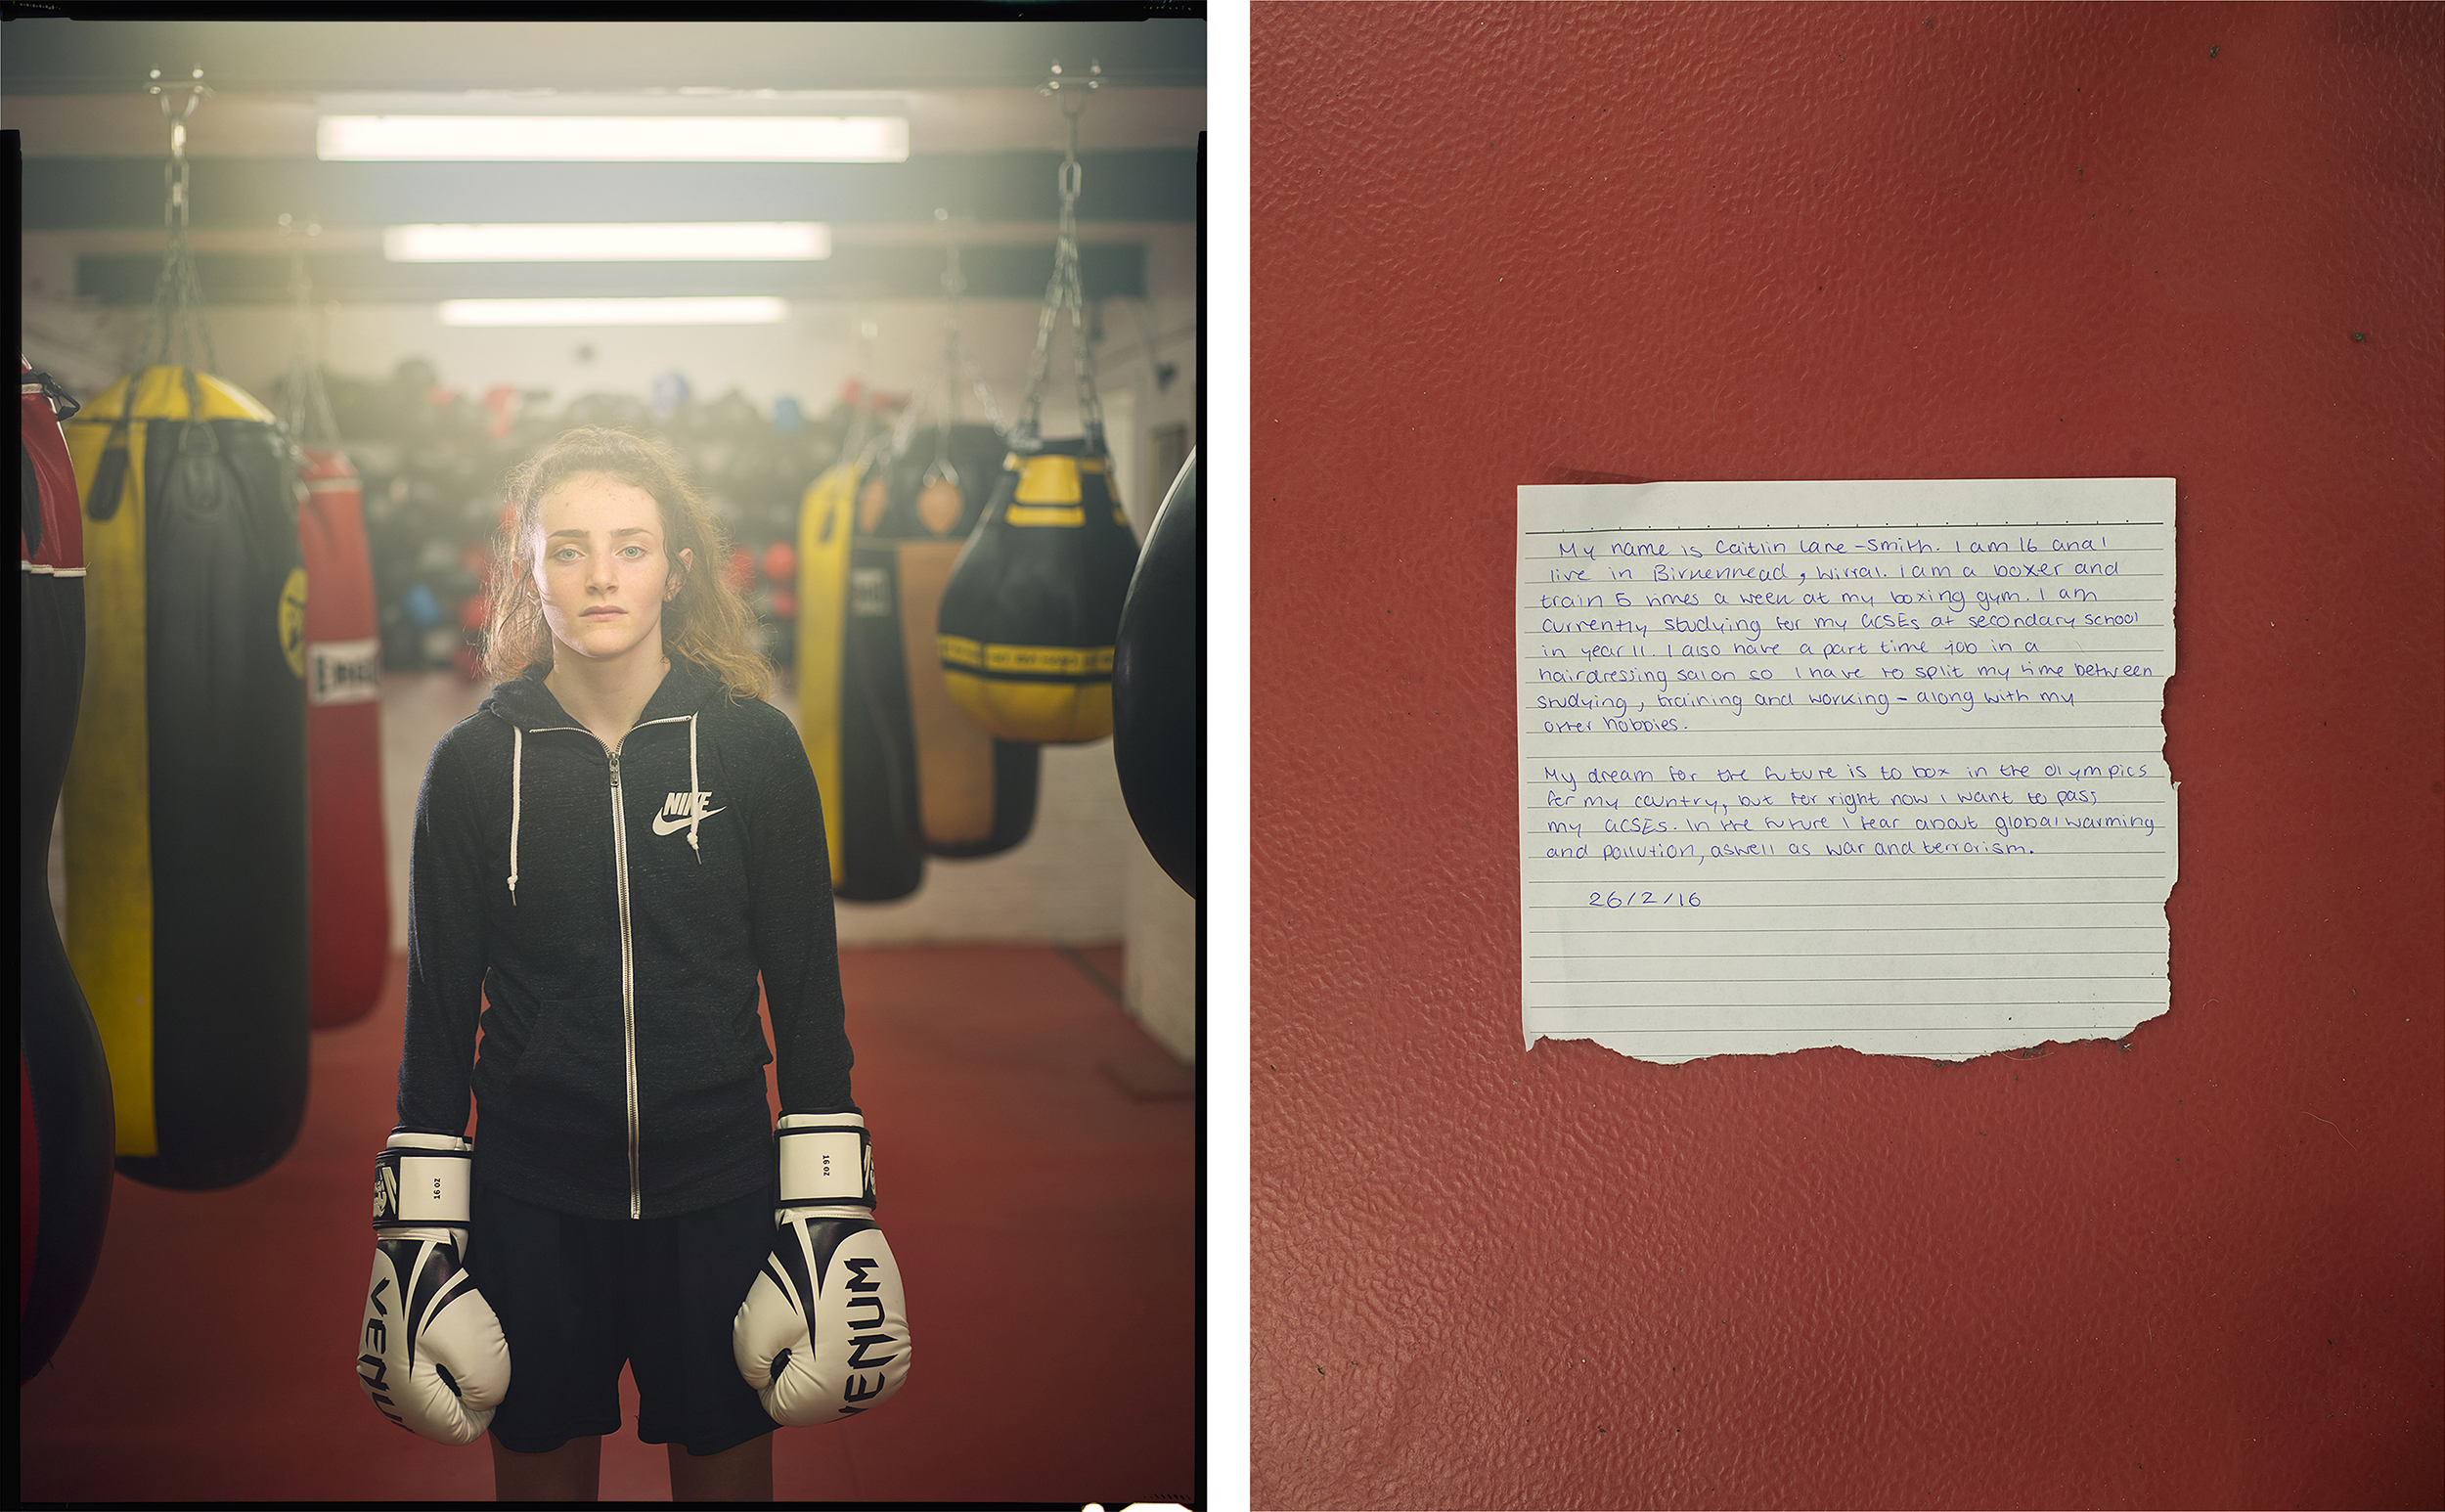 NIKE
16 OZ
16 OZ
VENUM
VENUM
My name is Caitlin Lane-Smith. I am 16 and I
live in Birkenhead, Wirral. I am a boxer and
train 5 times a week at my boxing gym. I am
currently studying for my GCSEs at secondary school
in year 11. I also have a part time job in a
hairdressing salon so I have to split my time between
studying, training and working - along with my
other hobbies.
My dream for the future is to box in the Olympics
for my country, but for right now I want to pass
my GCSEs. In the future I fear about global warming
and pollution, aswell as war and terrorism.
26/2/16